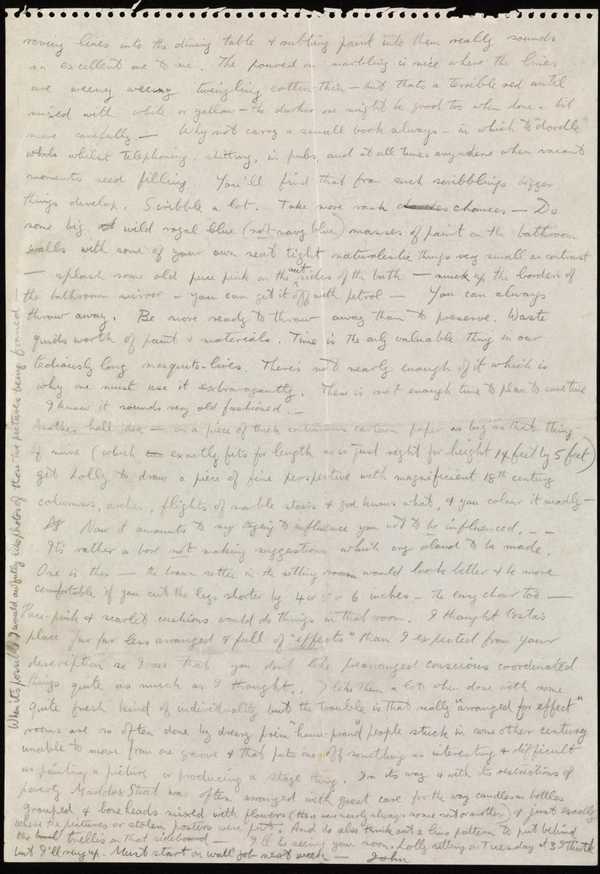 lines into the dining table & rubbing paint into them really sounds
an excellent one to me. The poured on marbling is nice where the lines
are weeny weeny twingling cotton thin – but thats a terrible red until
mixed with white or yellow – the darker one might be good too when done a bit
more carefully – Why not carry a small book always – in which to "doodle"
whilst telephoning, shitting, in pubs, and at all times anywhere when vacant
moments need filling. You'll find that from such scribblings bigger
things develop. Scribble a lot. Take more rank chances – Do
some big wild royal blue (not navy blue) masses of paint on the bathroom
walls with some of your own neat tight naturalistic things very small as contrast
– splash some old puce pink on the outsides of the bath – muck up the borders of
the bathroom mirror – you can get it off with petrol – You can always
throw away. Be more ready to throw away than to preserve. Waste
quids worth of paint & materials. Time is the only valuable thing in our
tediously long mosquito-lives. There's not nearly enough of it which is
why one must use it extravagantly. There is not enough time to plan to
I know it sounds very old fashioned. –
Another half idea – on a piece of thick continuous cartoon paper as big as that thing
of mine (which exactly fits for length & is just right for height 14 feet by 5 feet)
get Lolly to draw a piece of fine perspective with magnificent 18th century
columns, arches, flights of marble stairs & god knows what, & you colour it madly –
Now it amounts to my trying to influence you not to be influenced. – –
It's rather a bore not making suggestions which cry aloud to be made.
One is this – the brown settee in the sitting room would look better & be more
comfortable if you cut the legs shorter by 4 or 5 or 6 inches – the easy chair too –
Puce-pink & scarlet cushions would do things in that room. I thought
place far far less arranged & full of "effects" than I expected from your
description so I see that you don't like prearranged conscious coordinated
things quite as much as I thought. I like them a lot when done with some
quite fresh kind of individuality but the trouble is that really "arranged for effect"
rooms are so often done by dreary prim "house-proud" people stuck in some other century
unable to move from one groove & that puts one off something as interesting & difficult
as painting a picture or producing a stage thing. In its way & with its restrictions of
poverty Maddox Street was often arranged with great care for the way candles in bottles
grouped & bone heads mixed with flowers (there was nearly always some rot or other) & just exactly
where the pictures or stolen posters were put. And do also think out a line pattern to put behind
the small trellis on that sideboard – I'll be seeing your room & Lolly sitting on Tuesday at 3 I think
but I'll ring up. Must start on wall job next week – John
When its possible I would awfully like photos of those two pictures being framed –